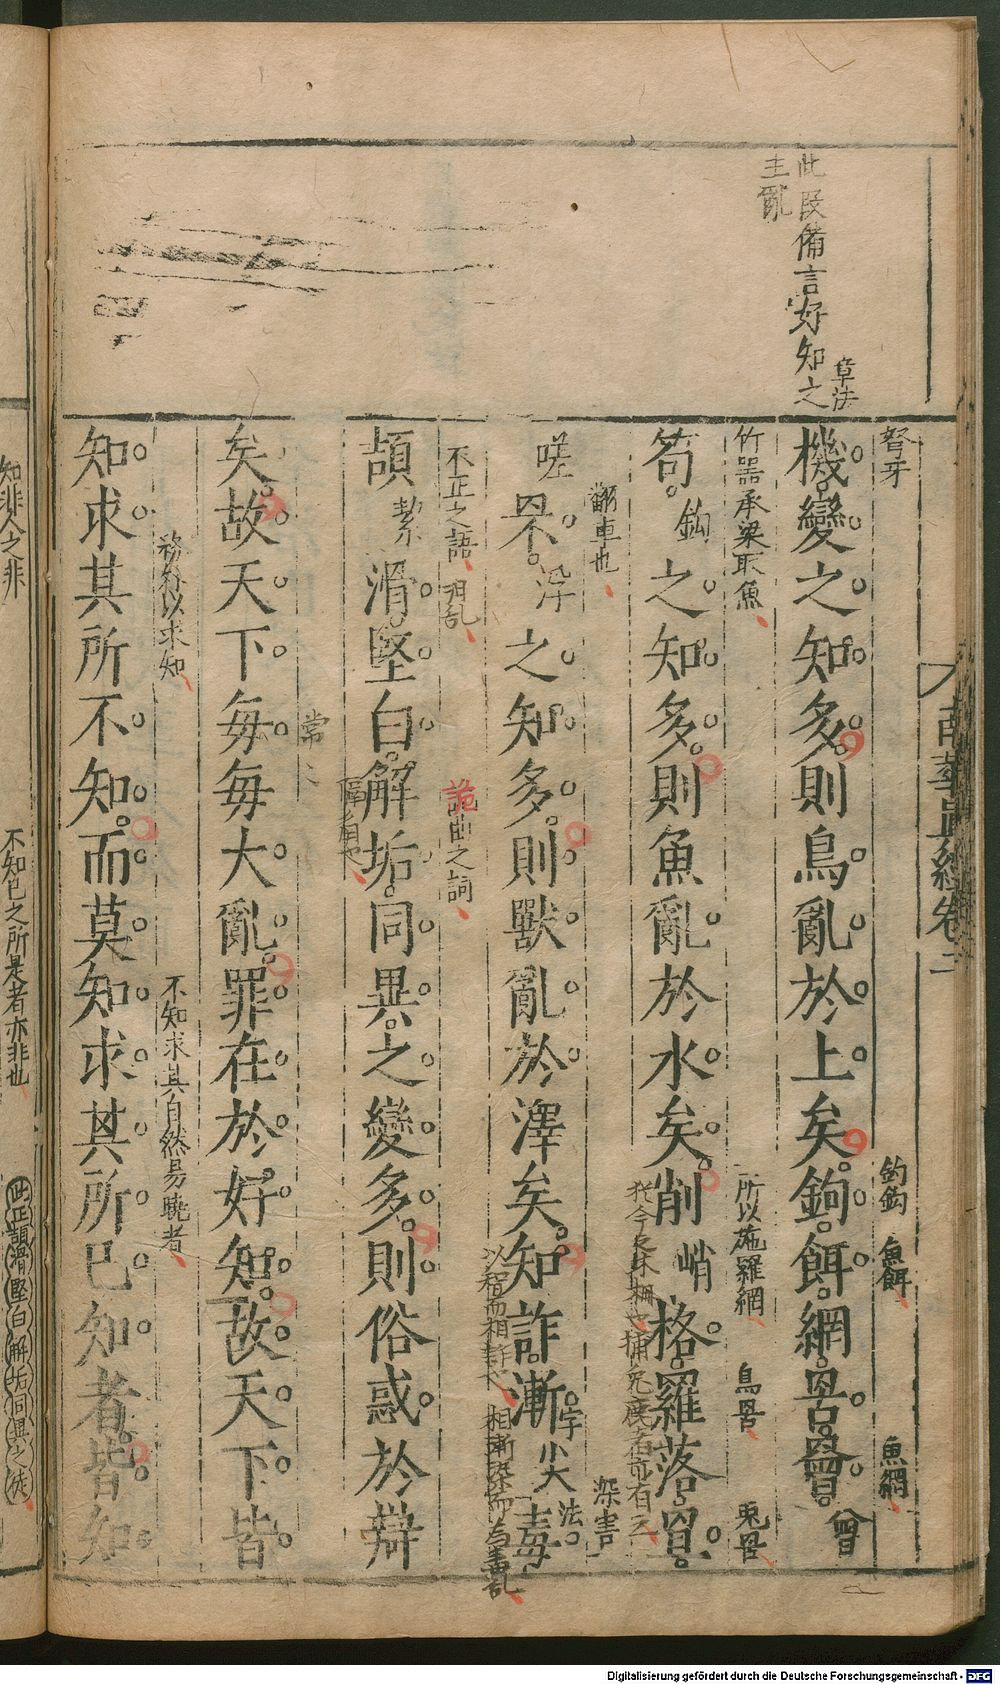 此段備言好知之
主亂
章法
南華真經卷三
弩牙
鈎鈎
魚餌
魚網
機變之知多則鳥亂於上矣鉤餌網罟罾曾
竹器承梁取魚
所以施羅網
鳥罟
兎罟
笱鈎之知多則魚亂於水矣削峭格羅落罝
翻車也
深害
嗟罘浮之知多則獸亂於澤矣知詐漸尖毒
字法
以智而相詐也
相漸染而為毒亂
不正之語
滑乱
詭曲之詞
頡絜滑堅白解垢同異之變多則俗惑於辯
常
矣故天下每每大亂罪在於好知故天下皆
務外以求知
不知求其自然易曉者
知求其所不知而莫知求其所已知者皆知
知非人之非
不知已之所是者亦非也
此正頡滑堅白解垢同異之徒
Digitalisierung gefördert durch die Deutsche Forschungsgemeinschaft - DFG